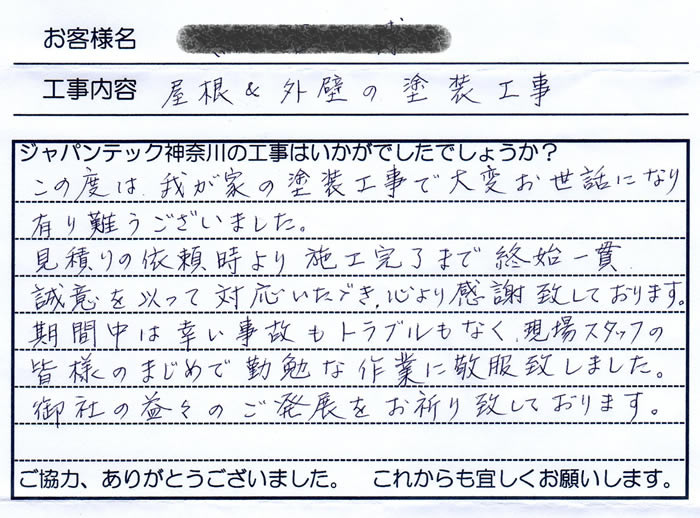 お客様名
工事内容 屋根&外壁の塗装工事
ジャパンテック神奈川の工事はいかがでしたでしょうか?
この度は、我が家の塗装工事で大変お世話になり
有り難うございました。
見積りの依頼時より施工完了まで終始一貫
誠意を以って対応いただき、心より感謝致しております。
期間中は幸い事故もトラブルもなく、現場スタッフの
皆様のまじめで勤勉な作業に敬服致しました。
御社の益々のご発展をお祈り致しております。
ご協力、ありがとうございました。 これからも宜しくお願いします。